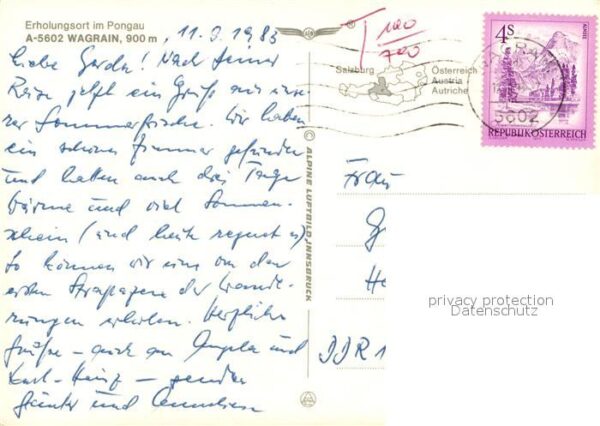 Erholungsort im Pongau
A-5602 WAGRAIN, 900 m, 11.9.1983
Liebe Gerda! Nach Deiner
Reise jetzt ein Gruß aus unse-
rer Sommerfrische. Wir haben
ein schönes Zimmer gefunden
und hatten auch drei Tage
Wärme und viel Sonnen-
schein (und heute regnet es).
So können wir uns von den
ersten Strapazen der Wande-
rungen erholen. Herzliche
Grüße – auch an Angela und
Karl-Heinz – senden
Günter und
ALPINE LUFTBILD, INNSBRUCK
T
700
Salzburg
Österreich
Austria
Autriche
4S
5602
REPUBLIK ÖSTERREICH
Frau
G
He
DDR 1
privacy protection
Datenschutz